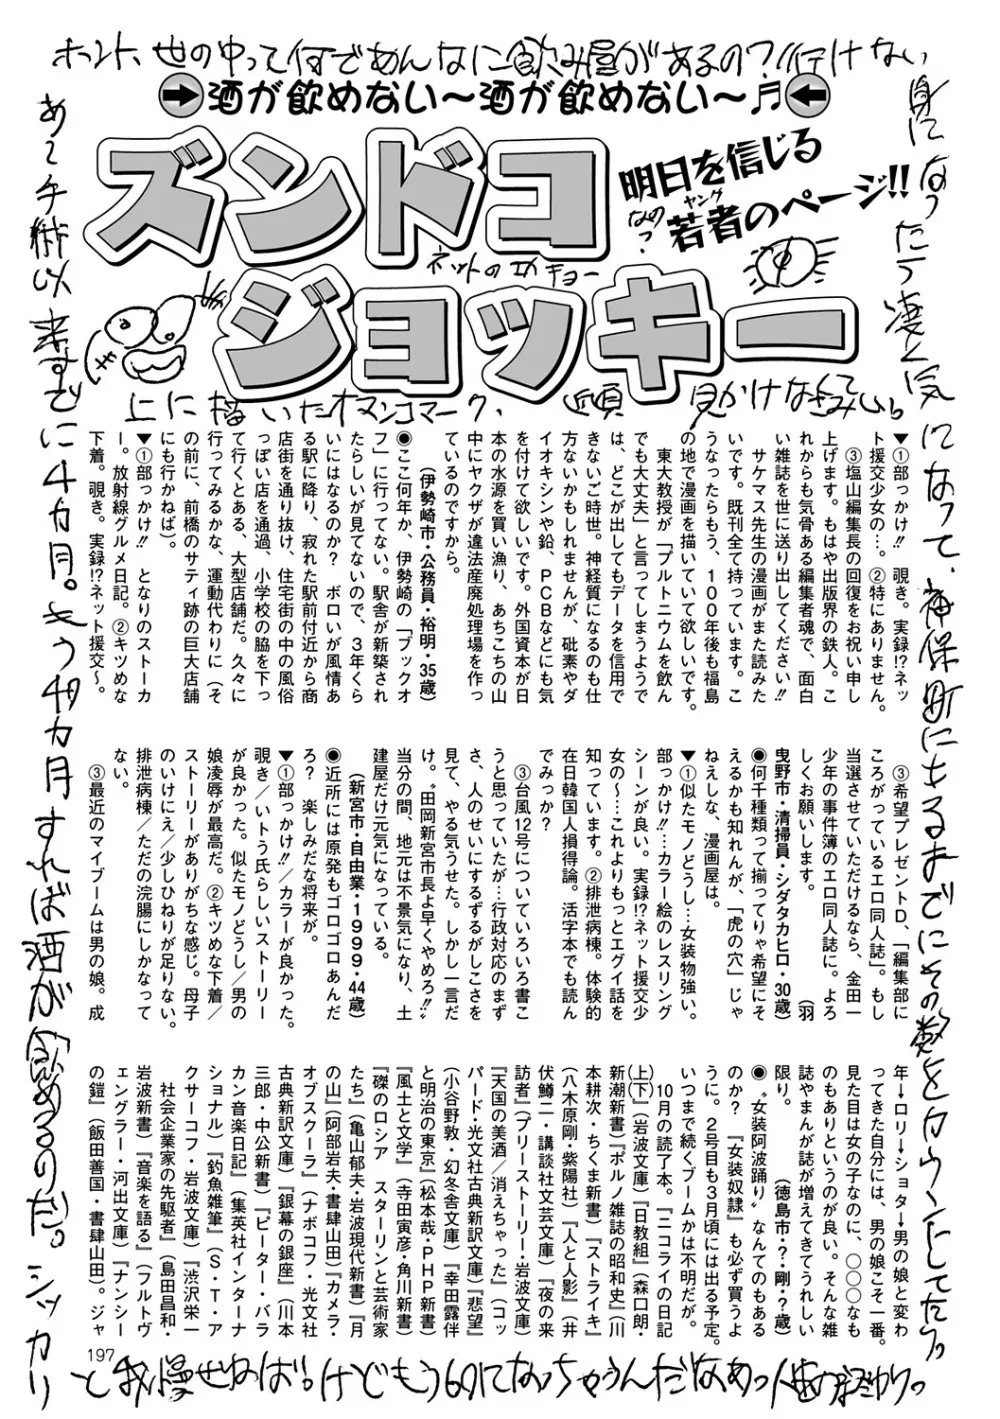 ホント、世の中って何であんなに飲み屋があるの？行けない
酒が飲めない～酒が飲めない～♬
ズンドコ
ジョッキー
明日を信じる
若者のページ!!
ヤング
なめ？
上に描いたオマンコマーク、
身になったら凄く気になって、神保町に
あ〜手術以来すでに4カ月。
すれば酒が飲めるのだ。シッカリ
と我慢せねば！けどもう60になっちゃうんだなあっ
▼①部っかけ!!　覗き。実録!?ネッ
ト援交少女の…。②特にありません。
③塩山編集長の回復をお祝い申し
上げます。もはや出版界の鉄人。こ
れからも気骨ある編集者魂で、面白
い雑誌を世に送り出してください!!
サケマス先生の漫画がまた読みた
いです。既刊全て持っています。こ
うなったらもう、100年後も福島
の地で漫画を描いていて欲しいです。
東大教授が「プルトニウムを飲ん
でも大丈夫」と言ってしまうようで
は、どこが出してもデータを信用で
きないご時世。神経質になるのも仕
方ないかもしれませんが、砒素やダ
イオキシンや鉛、PCBなどにも気
を付けて欲しいです。外国資本が日
本の水源を買い漁り、あちこちの山
中にヤクザが違法産廃処理場を作っ
ているのですから。
（伊勢崎市・公務員・裕明・35歳）
◉ここ何年か、伊勢崎の「ブックオ
フ」に行ってない。駅舎が新築され
たらしいが見てないので、3年くら
いにはなるのか？　ボロいが風情あ
る駅に降り、寂れた駅前付近から商
店街を通り抜け、住宅街の中の風俗
っぽい店を通過、小学校の脇を下っ
て行くとある、大型店舗だ。久々に
行ってみるかな、運動代わりに（そ
の前に、前橋のサティ跡の巨大店舗
にも行かねば）。
▼①部っかけ!!　となりのストーカ
ー。放射線グルメ日記。②キツめな
下着。覗き。実録!?ネット援交～。
③希望プレゼントD、「編集部に
ころがっているエロ同人誌」。もし
当選させていただけるなら、金田一
少年の事件簿のエロ同人誌に。よろ
しくお願いします。　（羽
曳野市・清掃員・シダタカヒロ・30歳）
◉何千種類って揃ってりゃ希望にそ
えるかも知れんが、「虎の穴」じゃ
ねえしな、漫画屋は。
▼①似たモノどうし…女装物強い。
部っかけ!!…カラー絵のレスリング
シーンが良い。実録!?ネット援交少
女の～…これよりもっとエグイ話を
知っています。②排泄病棟。体験的
在日韓国人損得論。活字本でも読ん
でみっか？
③台風12号についていろいろ書こ
うと思っていたが…行政対応のまず
さ、人のせいにするずるがしこさを
見て、やる気うせた。しかし一言だ
け。"田岡新宮市長よ早くやめろ!!"
当分の間、地元は不景気になり、土
建屋だけ元気になっている。
（新宮市・自由業・1999・44歳）
◉近所には原発もゴロゴロあんだ
ろ？　楽しみだな将来が。
▼①部っかけ!!／カラーが良かった。
覗き／いトう氏らしいストーリー
が良かった。似たモノどうし／男の
娘凌辱が最高だ。②キツめな下着／
ストーリーがありがちな感じ。母子
のいけにえ／少しひねりが足りない。
排泄病棟／ただの浣腸にしかなって
ない。
③最近のマイブームは男の娘。成
年→ロリ→ショタ→男の娘と変わ
ってきた自分には、男の娘こそ一番。
見た目は女の子なのに、〇〇〇なも
のもありというのが良い。そんな雑
誌やまんが誌が増えてきてうれしい
限り。　（徳島市・？・剛・？歳）
◉"女装阿波踊り"なんてのもある
のか？『女装奴隷』も必ず買うよ
うに。2号目も3月頃には出る予定。
いつまで続くブームかは不明だが。
10月の読了本。『ニコライの日記
（上下）』（岩波文庫）『日教組』（森口朗・
新潮新書）『ポルノ雑誌の昭和史』（川
本耕次・ちくま新書）『ストライキ』
（八木原剛・紫陽社）『人と人影』（井
伏鱒二・講談社文芸文庫）『夜の来
訪者』（プリーストリー・岩波文庫）
『天国の美酒／消えちゃった』（コッ
パード・光文社古典新訳文庫）『悲望』
（小谷野敦・幻冬舎文庫）『幸田露伴
と明治の東京』（松本哉・PHP新書）
『風土と文学』（寺田寅彦・角川新書）
『磔のロシア　スターリンと芸術家
たち』（亀山郁夫・岩波現代新書）『月
の山』（阿部岩夫・書肆山田）『カメラ・
オブスクーラ』（ナボコフ・光文社
古典新訳文庫）『銀幕の銀座』（川本
三郎・中公新書）『ピーター・バラ
カン音楽日記』（集英社インターナ
ショナル）『釣魚雑筆』（S・T・ア
クサーコフ・岩波文庫）『渋沢栄一
社会企業家の先駆者』（島田昌和・
岩波新書）『音楽を語る』（フルトヴ
ェングラー・河出文庫）『ナンシー
の鎧』（飯田善国・書肆山田）。ジャ
197